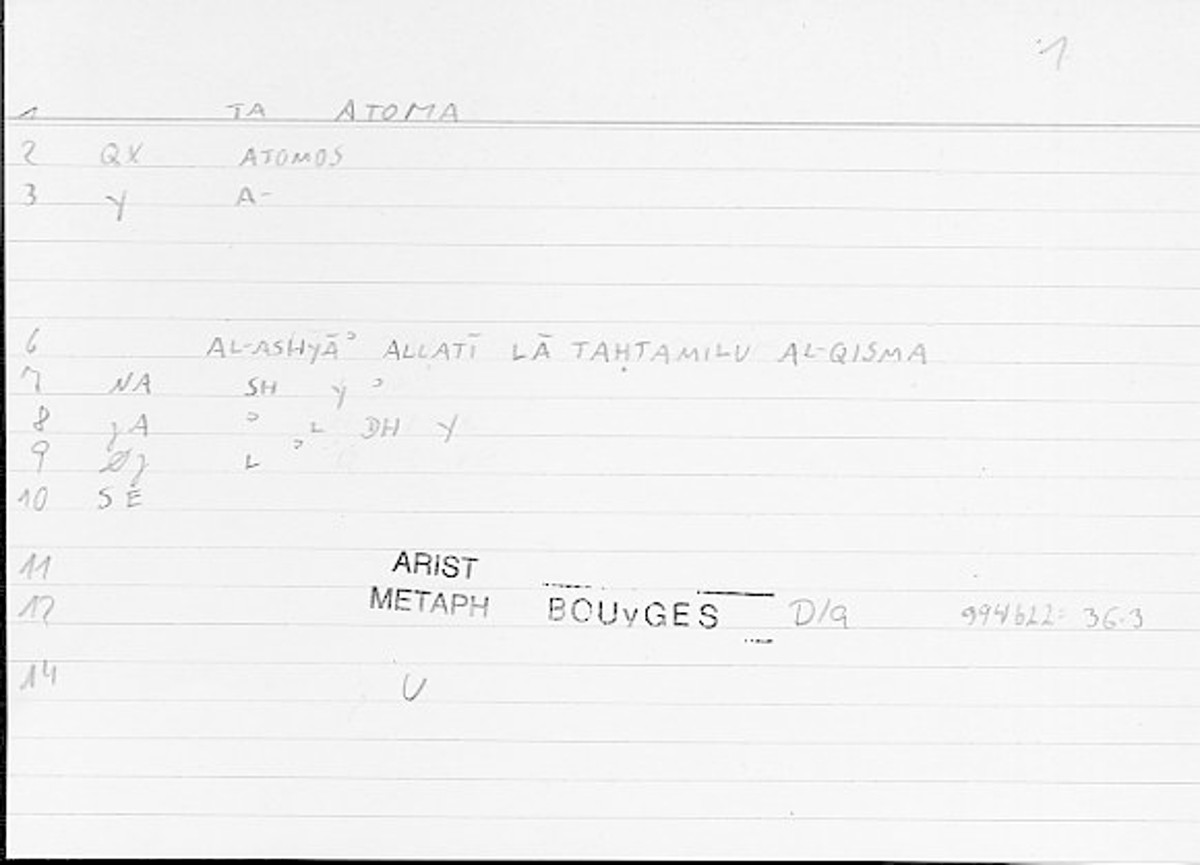 1
1 TA ATOMA
2 QX ATOMOS
3 Y A-
6 AL-ASHYĀʾ ALLATĪ LĀ TAḤTAMILU AL-QISMA
7 NA SH Y ʾ
8 JA ʾ L DH Y
9 L ʾ
10 SE
11 ARIST
12 METAPH BOUyGES D/a 994b22: 36.3
14 U